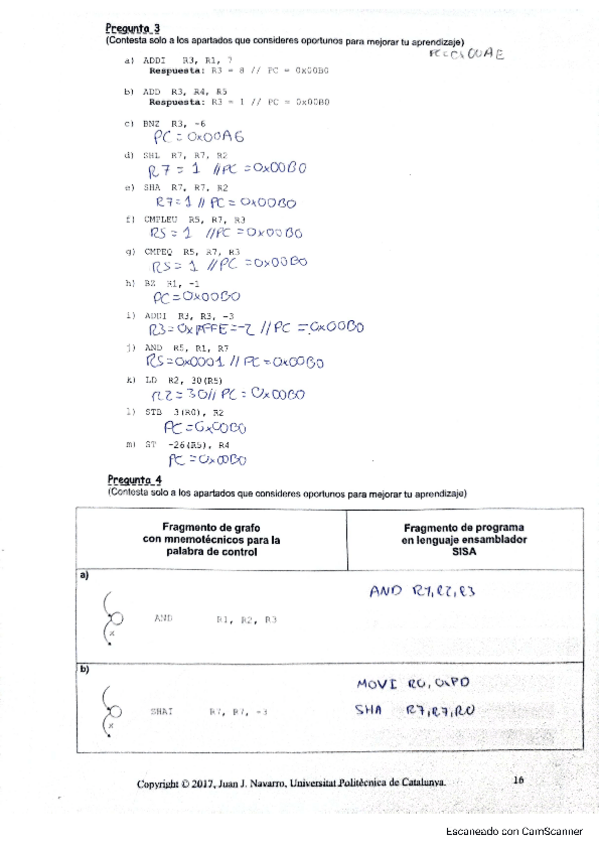 Pregunta 3
(Contesta solo a los apartados que consideres oportunos para mejorar tu aprendizaje)
PC=0x00AE
a) ADDI R3, R1, 7
Respuesta: R3 = 8 // PC = 0x00B0
b) ADD R3, R4, R5
Respuesta: R3 = 1 // PC = 0x00B0
c) BNZ R3, -6
PC = 0x00A6
d) SHL R7, R7, R2
R7 = 1 // PC = 0x00B0
e) SHA R7, R7, R2
R7=1 // PC = 0x00B0
f) CMPLEU R5, R7, R3
R5 = 1 // PC = 0x00B0
g) CMPEQ R5, R7, R3
R5 = 1 // PC = 0x00B0
h) BZ R1, -1
PC = 0x00B0
i) ADDI R3, R3, -3
R3 = 0xFFFE = -2 // PC = 0x00B0
j) AND R5, R1, R7
R5 = 0x0001 // PC = 0x00B0
k) LD R2, 30(R5)
R2 = 30 // PC = 0x00B0
l) STB 3(R0), R2
PC = 0x00B0
m) ST -26(R5), R4
PC = 0x00B0
Pregunta 4
(Contesta solo a los apartados que consideres oportunos para mejorar tu aprendizaje)
Fragmento de grafo
con mnemotécnicos para la
palabra de control
Fragmento de programa
en lenguaje ensamblador
SISA
a)
AND R1, R2, R3
x
AND R1, R2, R3
b)
MOVI R0, 0xFD
SHAI R7, R7, -3
SHA R7, R7, R0
x
Copyright © 2017, Juan J. Navarro, Universitat Politècnica de Catalunya.
16
Escaneado con CamScanner